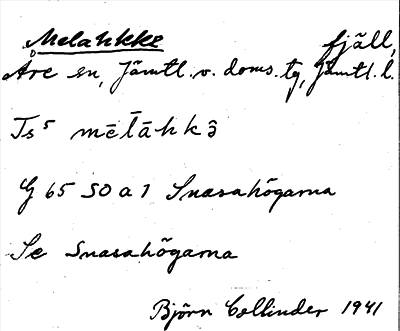 Melahkke fjäll,
Åre sn, Jämtl. v. doms. tg, Jämtl. l.
Ts⁵ mēl̄āhkə̂
G 65 SO a 1 Snasahögarna
Se Snasahögarna
Björn Collinder 1941